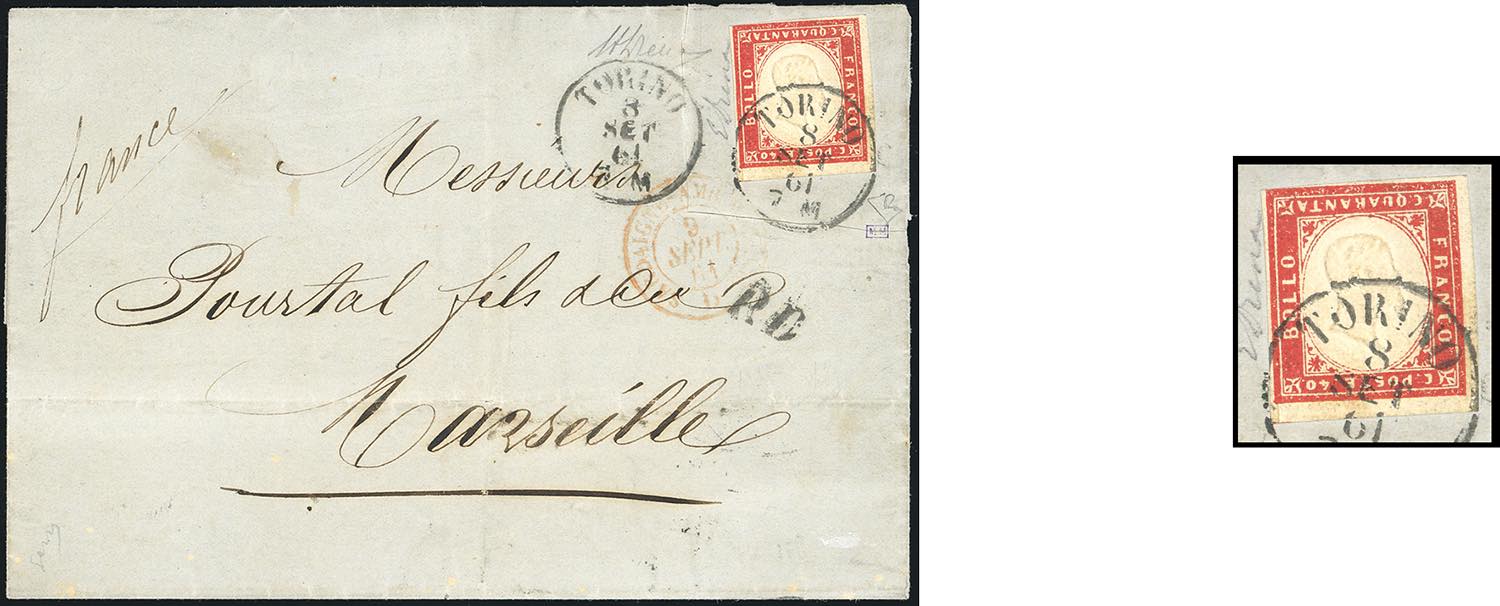 france
TORINO
8
SET
61
M
C. QUARANTA
BOLLO
FRANCO
C. POSTE 40
TORINO
8
SET
61
7 M
9
SEPT
61
Messieurs
Pourtal fils
RD
Marseille
C. QUARANTA
BOLLO
FRANCO
C. POSTE 40
TORINO
8
SET
61